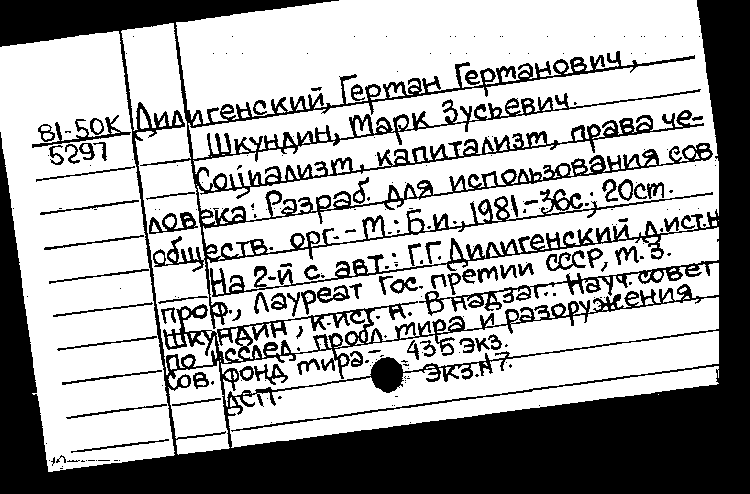 81-50К
5297
Дилигенский, Герман Германович,
Шкундин, Марк Зусьевич.
Социализм, капитализм, права че-
ловека: Разраб. для использования сов.
обществ. орг. - М.: Б.и., 1981.-36с.; 20см.
На 2-й с. авт.: Г.Г.Дилигенский, д.ист.н
проф., Лауреат Гос. премии СССР, М. З.
Шкундин, к.ист. н. В надзаг.: Науч. совет
по исслед. пробл. мира и разоружения,
Сов. фонд мира. - 435 экз.
Экз.№7.
ДСП.